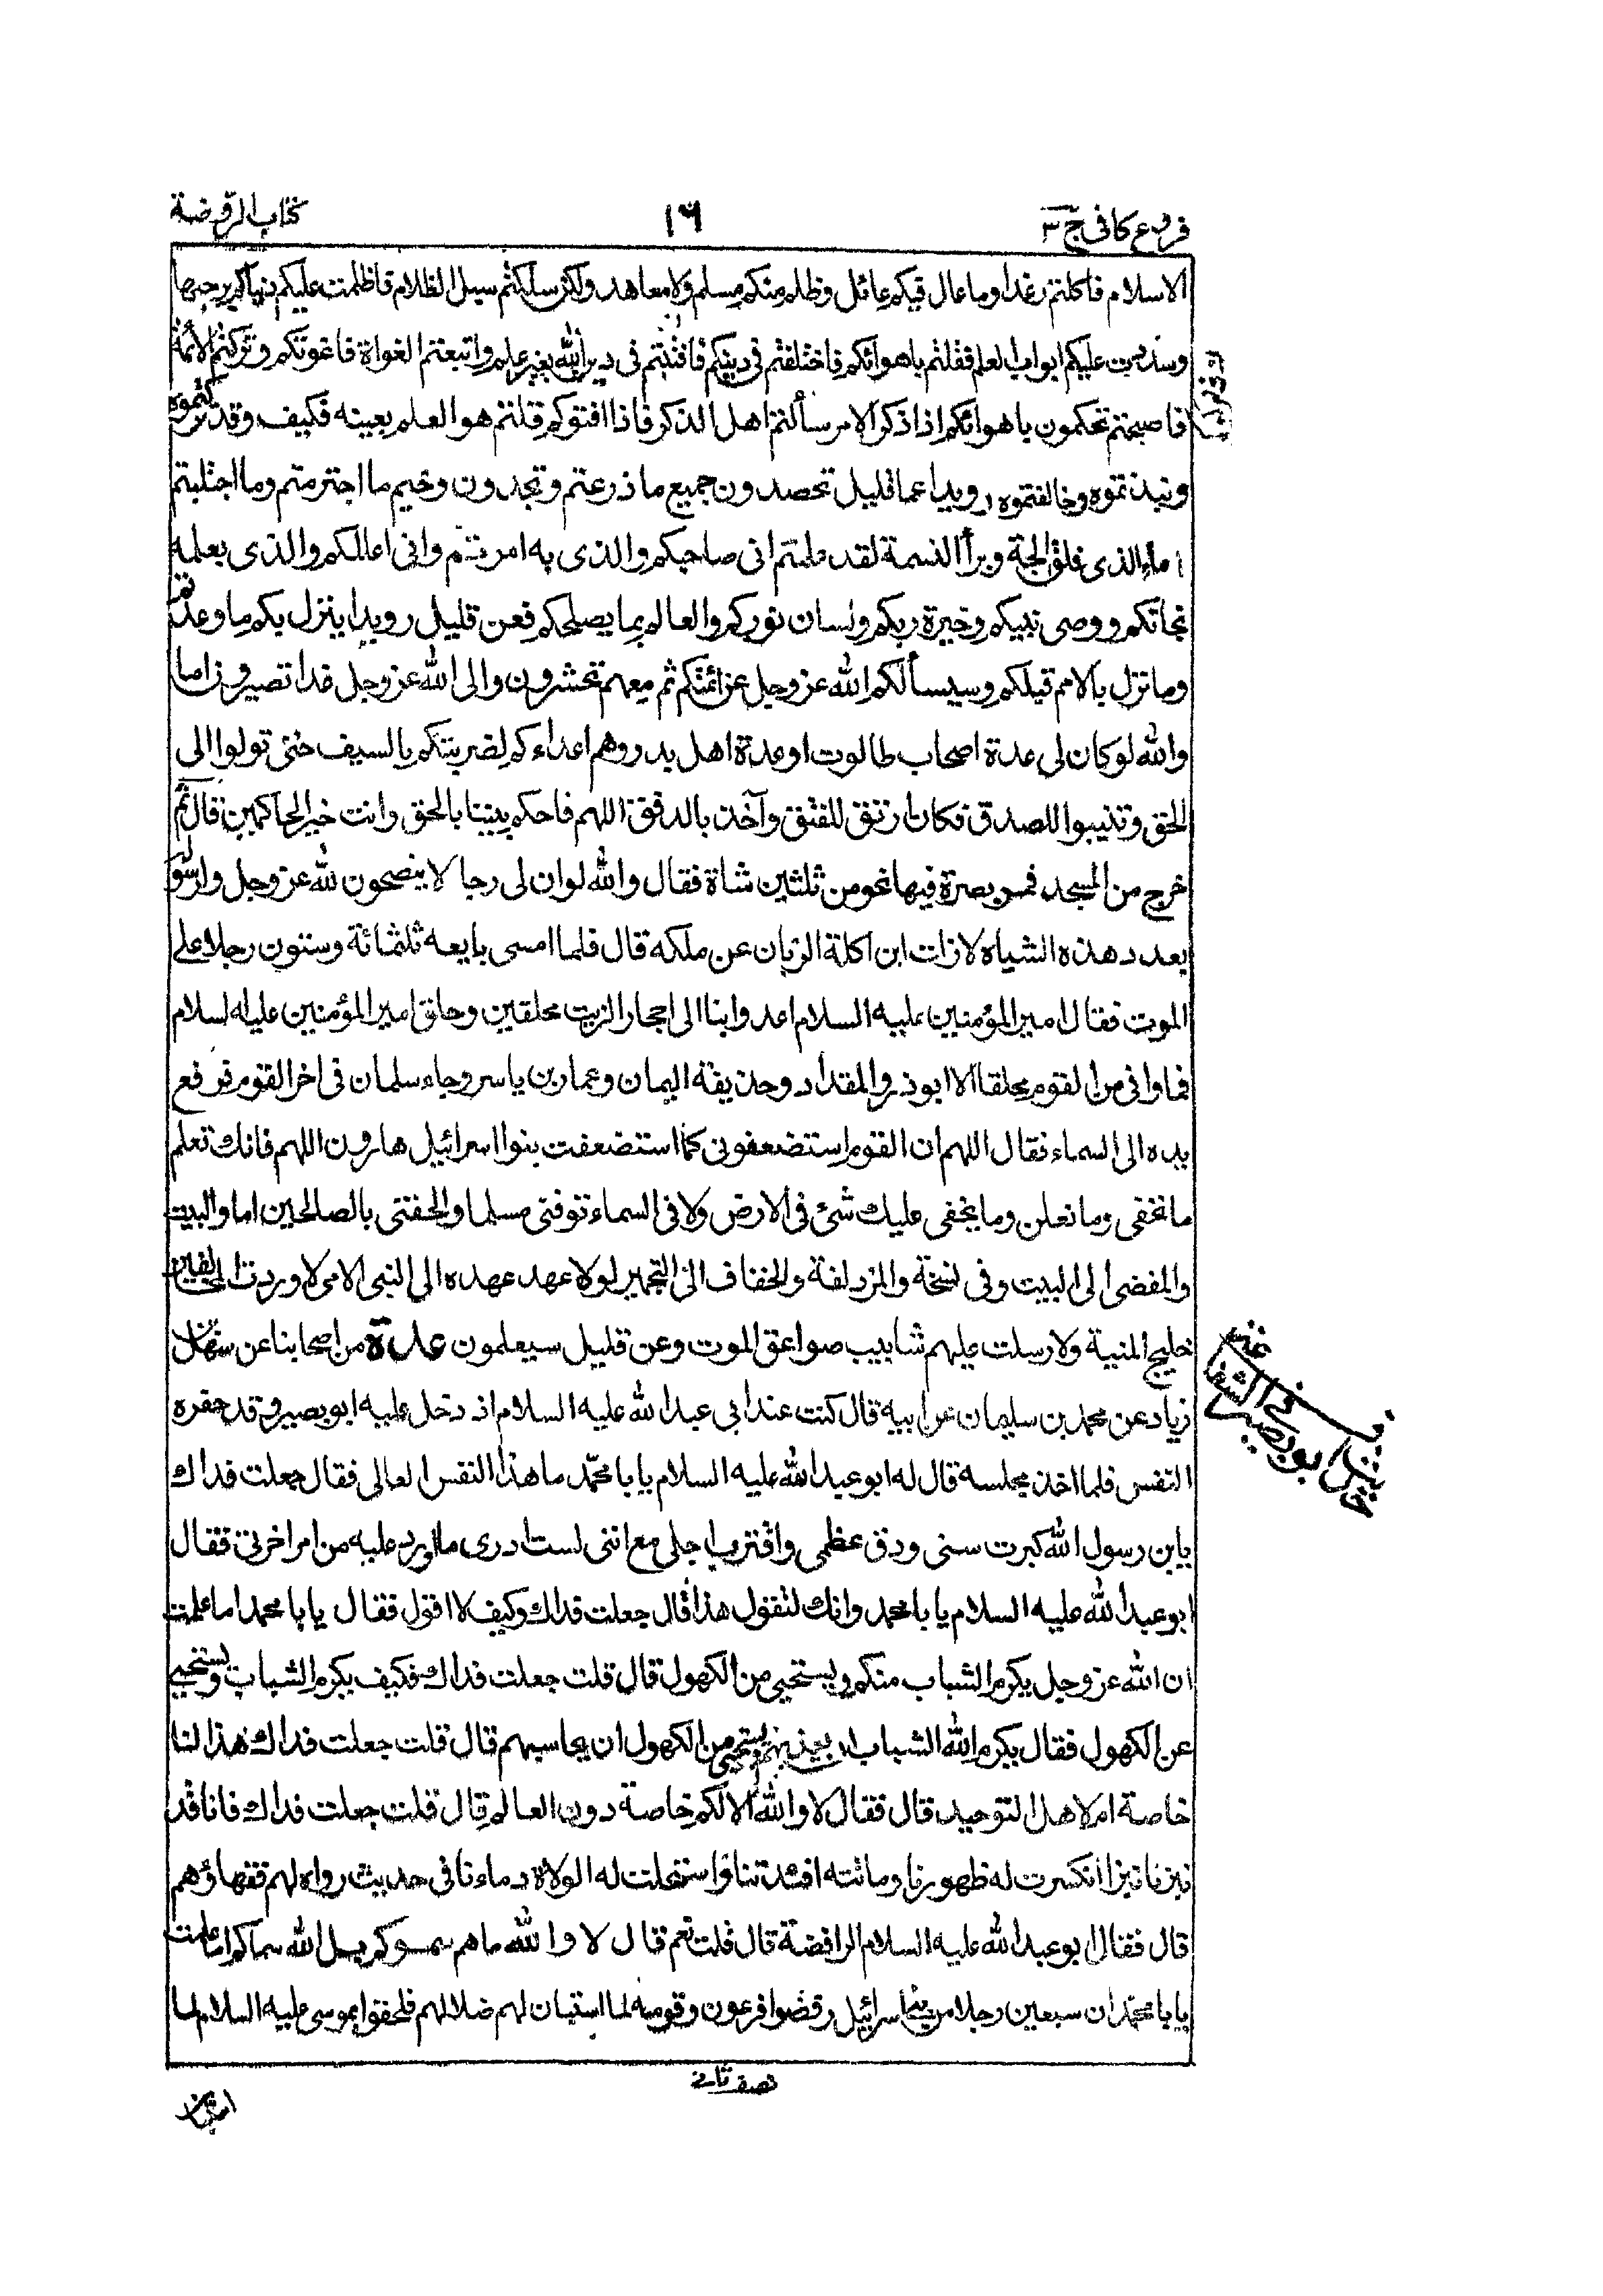 فروع كافى ج ٣
١٦
كتاب الروضة
الاسلام فاكلتم رغدا وما عال فيكم عائل وظلم منكم مسلم ولا معاهد ولكن سلكتم سبيل الظلام فاظلمت عليكم دنياكم برحبها
وسدت عليكم ابواب العلم فقلتم باهوائكم فاختلفتم فى دينكم فافتيتم فى دين الله بغير علم واتبعتم الغواة فاغوتكم وتركتم الائمة
فاصبحتم تحكمون باهوائكم اذا ذكر الامر سألتم اهل الذكر فاذا افتوكم قلتم هو العلم بعينه فكيف وقد تركتموه
ونبذتموه وخالفتموه رويدا عما قليل تحصدون جميع ما زرعتم وتجدون وخيم ما اجترمتم وما اجتلبتم
اما والذى فلق الحبة وبرأ النسمة لقد علمتم انى صاحبكم والذى به امرتم وانى عالمكم والذى بعلمه
نجاتكم ووصى نبيكم وخيرة ربكم ولسان نوركم والعالم بما يصلحكم فعن قليل رويدا ينزل بكم ما وعدتم
وما نزل بالامم قبلكم وسيسألكم الله عز وجل عن ائمتكم ثم معهم تحشرون والى الله عز وجل غدا تصيرون اما
والله لو كان لى عدة اصحاب طالوت او عدة اهل بدر وهم اعداءكم لضربتكم بالسيف حتى تولوا الى
الحق وتنيبوا للصدق فكان ارتق للفتق وآخذ بالدفق اللهم فاحكم بيننا بالحق وانت خير الحاكمين قال ثم
خرج من المسجد فمر بصيرة فيها نحو من ثلثين شاة فقال والله لو ان لى رجا لا ينصحون لله عز وجل ولرسوله
بعدد هذه الشياه لازلت ابن اكلة الزبان عن ملكه قال فلما امسى بايعه ثلثمائة وستون رجلا على
الموت فقال امير المؤمنين عليه السلام اعدوا بنا الى احجار الزيت محلقين وحلق امير المؤمنين عليه السلام
فما وافى من القوم محلقا الا ابو ذر والمقداد وحذيفة اليمان وعمار بن ياسر وجاء سلمان فى اخر القوم فرفع
يده الى السماء فقال اللهم ان القوم استضعفونى كما استضعفت بنوا اسرائيل هارون اللهم فانك تعلم
ما نخفى وما نعلن وما يخفى عليك شئ فى الارض ولا فى السماء توفنى مسلما والحقنى بالصالحين اما والبيت
والمفضى الى البيت وفى نسخة والمزدلفة والخفاف الى التجمير لولا عهد عهده الى النبى الامى لاوردت المخالفين
خليج المنية ولارسلت عليهم شابيب صواعق الموت وعن قليل سيعلمون عدة من اصحابنا عن سهل بن
زياد عن محمد بن سليمان عن ابيه قال كنت عند ابى عبد الله عليه السلام اذ دخل عليه ابو بصير وقد حفزه
النفس فلما اخذ مجلسه قال له ابو عبد الله عليه السلام يا با محمد ما هذا النفس العالى فقال جعلت فداك
يابن رسول الله كبرت سنى ودق عظمى واقترب اجلى مع اننى لست ادرى ما ارد عليه من امر اخرتى فقال
ابو عبد الله عليه السلام يا با محمد وانك لتقول هذا قال جعلت فداك وكيف لا اقول فقال يا با محمد اما علمت
ان الله عز وجل يكرم الشباب منكم ويستحيى من الكهول قال قلت جعلت فداك فكيف يكرم الشباب ويستحيى
عن الكهول فقال يكرم الله الشباب ان يعذبهم ويستحيى من الكهول ان يحاسبهم قال قلت جعلت فداك هذا لنا
خاصة ام لاهل التوحيد قال فقال لا والله الا لكم خاصة دون العالم قال قلت جعلت فداك فانا قد
نبزنا نبزا انكسرت له ظهورنا وماتت له افئدتنا واستحلت له الولاة دماءنا فى حديث رواه لهم فقهاؤهم
قال فقال ابو عبد الله عليه السلام الرافضة قال قلت نعم قال لا والله ما هم سموكم بل الله سماكم اما علمت
يا با محمد ان سبعين رجلا من بنى اسرائيل رفضوا فرعون وقومه لما استبان لهم ضلالهم فلحقوا بموسى عليه السلام لما